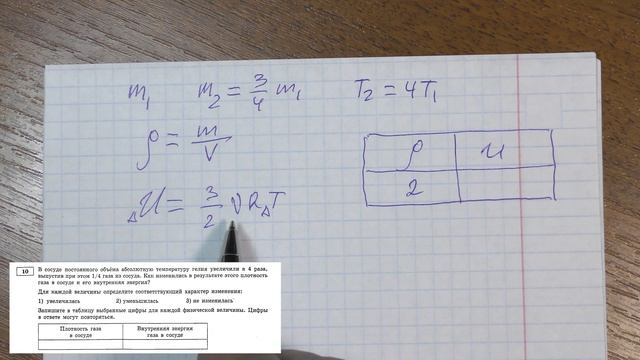 m₁ m₂ = 3/4 m₁ T₂ = 4T₁
ρ = m/V
ρ U
2
ΔU = 3/2 νRΔT
10 В сосуде постоянного объёма абсолютную температуру гелия увеличили в 4 раза,
выпустив при этом 1/4 газа из сосуда. Как изменились в результате этого плотность
газа в сосуде и его внутренняя энергия?
Для каждой величины определите соответствующий характер изменения:
1) увеличилась 2) уменьшилась 3) не изменилась
Запишите в таблицу выбранные цифры для каждой физической величины. Цифры
в ответе могут повторяться.
Плотность газа Внутренняя энергия
в сосуде газа в сосуде